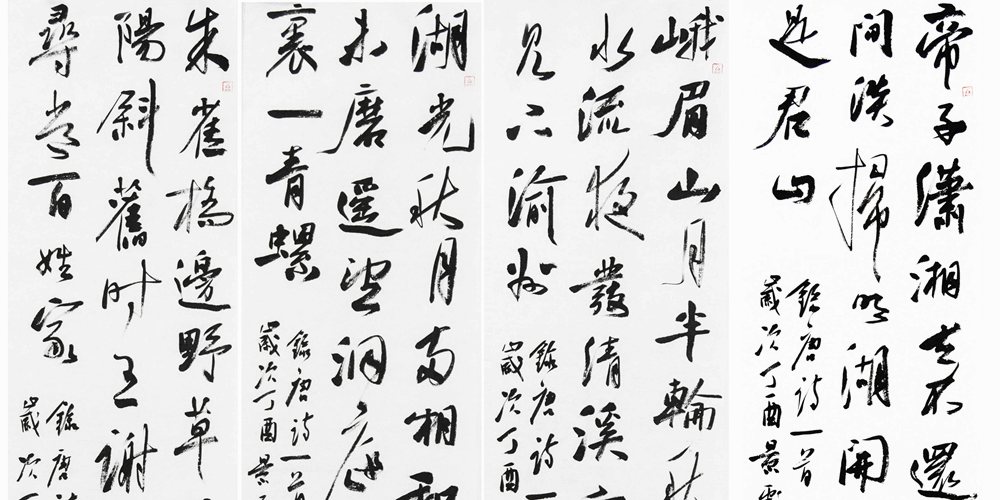 帝子瀟湘去不還
間淡掃明湖開
是君山
錄唐詩一首
歲次丁酉景
峨眉山月半輪秋
水流夜發清溪
見下渝州
錄唐詩一
歲次丁酉
湖光秋月兩相和
未磨遙望洞庭
裏一青螺
錄唐詩一首
歲次丁酉景
朱雀橋邊野草
陽斜舊時王謝
尋常百姓家
錄唐
歲次